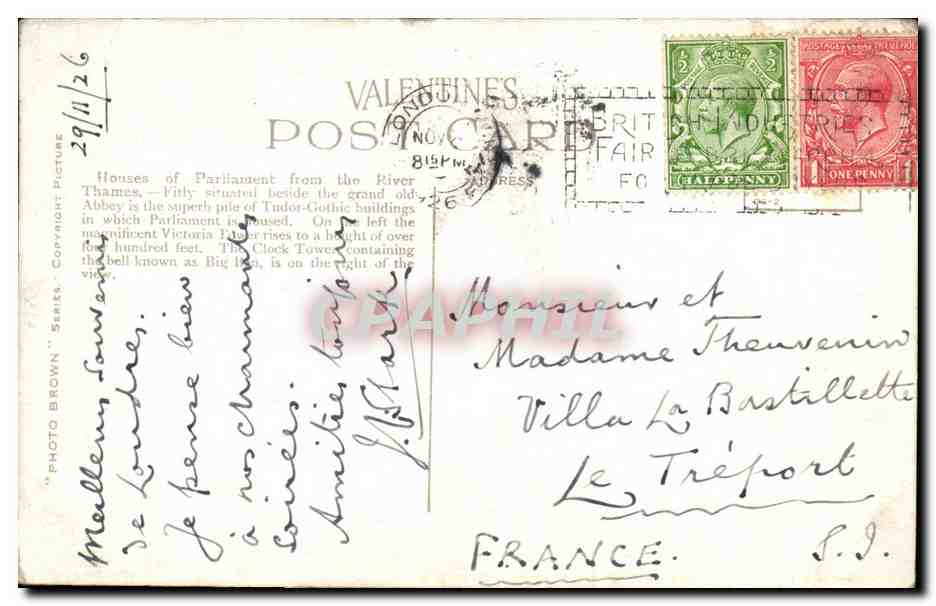 29/11/26
VALENTINE'S
POST CARD
ADDRESS
LONDON
NOV
8 15 PM
26
BRITISH INDUSTRIES
FAIR
FO
1/2
HALFPENNY
POSTAGE REVENUE
1 ONE PENNY 1
Houses of Parliament from the River
Thames.—Fitly situated beside the grand old
Abbey is the superb pile of Tudor-Gothic buildings
in which Parliament is housed. On the left the
magnificent Victoria Tower rises to a height of over
four hundred feet. The Clock Tower, containing
the bell known as Big Ben, is on the right of the
view.
"PHOTO BROWN" SERIES. COPYRIGHT PICTURE
Meilleurs souvenirs
de Londres.
Je pense bien
à nos charmantes
soirées.
Amitiés, toujours
Monsieur et
Madame Theuvenin
Villa La Bastillette
Le Tréport
FRANCE. S.I.
CPAPHIL